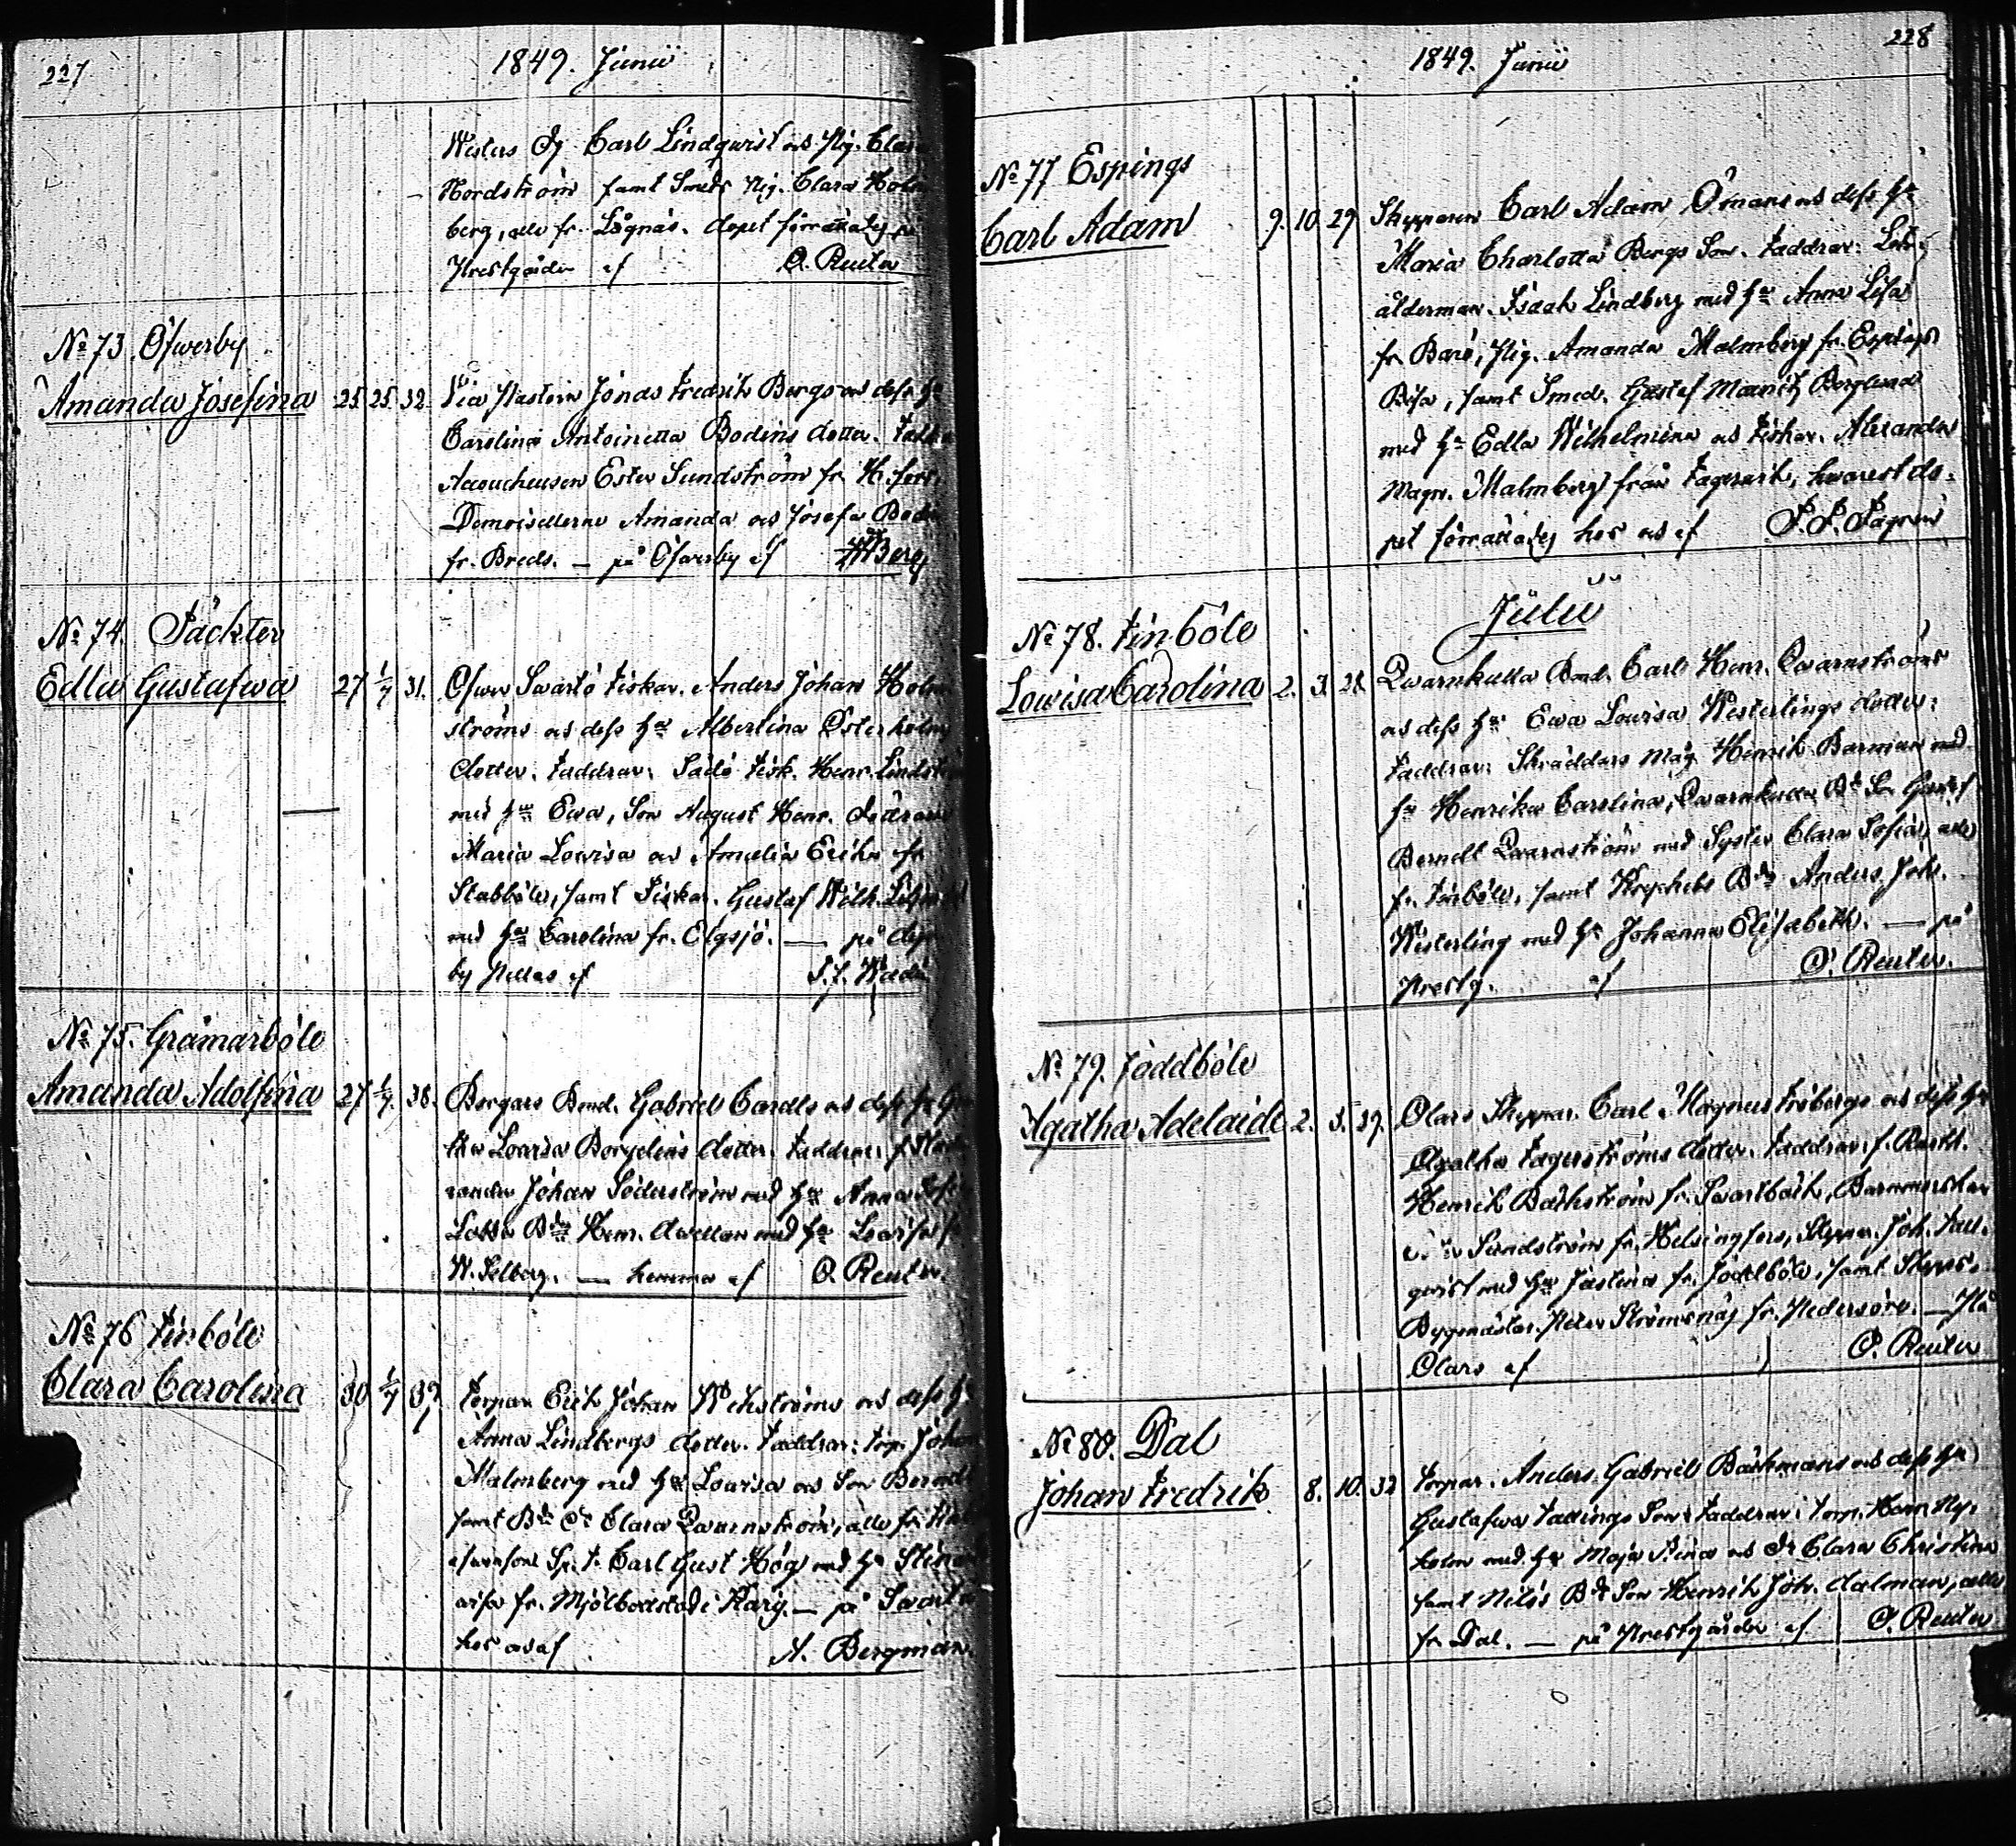 227
1849. Junii
Westers Dg Carl Lindqwist och Pig. Clara
Nordström samt Smeds Pig. Clara Holm
berg, alla fr. Lågnäs. dopet förrättades på
Prestgården af O. Reuter
№ 73. Öfwerby
Amanda Josefina 25 25 32
Vice Pastorn Jonas Fredrik Bergs och dess H
Carolina Antoinetta Bodins dotter. Faddr
Accoucheusen Ester Sundström fr. H:fors
Demoisellerne Amanda och Josefa Bodin
fr. Breds. — på Öfwerby af Berg
№ 74. Täckter
Edla Gustafwa 27 1/7 31.
Öfwer Swartö Fiskar. Anders Johan Holm
ströms och dess Hu Albertina Österholms
dotter. Faddrar: Sådö Fisk. Henr. Lindst
med Hu Ewa, Son August Henr. Döttrarne
Maria Lowisa och Amalia Erika fr.
Stabböle, samt Fiskar. Gustaf Wilh.
med Hu Carolina fr. Elgsjö. — på
by Nellas af
№ 75. Gråmarböle
Amanda Adolfina 27 1/7. 38.
Borgars Bond. Gabriel Cardls och dess Hu
Lowisa Borgelins dotter. Faddrar: f.
Johan Söderström med Hu Anna
Henr. med Hu Lowisa
W. Selberg. — hemma af O. Reuter.
№ 76 Finböle
Clara Carolina 30 1/7 39
Torpar. Erik Johan Wikströms och dess H
Anna Lindbergs dotter. Faddrar: Torp. Johan
Malmberg med Hu Lowisa och Son Berndt
samt Bds Dr Clara Qwarnström, alla fr.
Carl Gust Hög med Hu Stina
fr. Mjölbolstad i Karis. — på Swart
hos och af A. Bergman.
228
1849. Junii
№ 77 Espings
Carl Adam 9. 10. 29.
Skepparen Carl Adam Ömans och dess Hu
Maria Charlotta Bergs Son. Faddrar: Lots
ålderman. Isaak Lindberg med Hu Anna Lisa
fr. Barö, Pig. Amanda Malmberg fr. Espings
samt Smed. Gustaf Mauritz Berglund
med Hu Edla Wilhelmina och Fiskar. Alexander
Magn. Malmberg från Fagerwik, hwarest do-
pet förrättades hos och af
Julii
№ 78. Finböle
Lowisa Carolina 2. 3. 28.
Qwarnkulla Bond. Carl Henr. Qwarnströms
och dess Hu Ewa Lowisa Westerlings dotter:
Faddrar: Skräddars Måg Henrik Barman med
Hu Henrika Carolina, Qwarnkulla Bds Son Gustaf
Berndt Qwarnström med Syster Clara Sofia, alla
fr. Finböle, samt Bds Anders Joh.
Westerling med Hu Johanna Elisabeth. — på
Prestg. af O. Reuter.
№ 79. Joddböle
Agatha Adelaide 2. 3. 39.
Olars Skeppar. Carl Magnus Fribergs och dess Hu
Agatha Fagerströms dotter. Faddrar: f. Rustt.
Henrik Bäckström fr. Swartbäck, Barnmorskan
Sundström fr. Helsingfors, Skeppar. Joh. Tall-
qwist med Hu Justina fr. Joddböle, samt Skepps-
Bygmästar. Peter Strömsnäs fr. Pedersöre. — På
Olars af O. Reuter
№ 80. Dal
Johan Fredrik 8. 10. 32
Torpar. Anders Gabriel Bäckmans och dess Hu
Gustafwa Tallings Son. Faddrar: Torp. Henr. Ny-
holm med Hu Maja Stina och Dr Clara Christina
samt Nilss Bds Son Henrik Joh. Dalman, alla
fr. Dal. — på Prestgården af O. Reuter